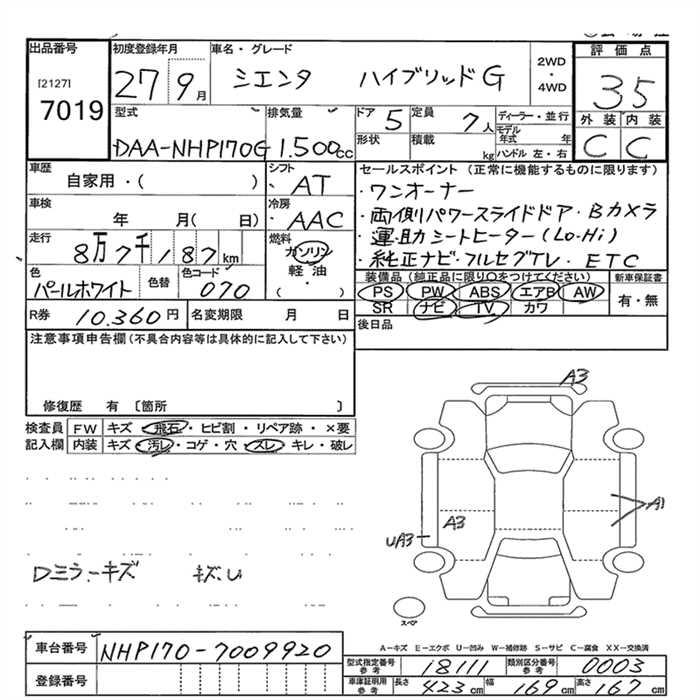 出品番号 初度登録年月 車名・グレード 2WD ・ 4WD 評価点
[2127]
7019 27 9月 シエンタ ハイブリッドG 35
型式 排気量 ドア 5 定員 7人 ディーラー・並行 外装 内装
DAA-NHP170G 1.500cc 形状 積載 kg モデル年式 年 C C
ハンドル 左・右
車歴 シフト セールスポイント (正常に機能するものに限ります)
自家用・( ) AT ・ワンオーナー
車検 冷房 ・両側パワースライドドア・Bカメラ
年 月( 日) AAC ・運・助シートヒーター(Lo-Hi)
走行 燃料 ・純正ナビ・フルセグTV・ETC
8万7千187km ガソリン
色 色替 色コード 軽油 装備品(純正品に限り○をつけてください) 新車保証書
パールホワイト 070 ( ) PS PW ABS エアB AW 有・無
SR ナビ TV カワ
R券 10.360円 名変期限 月 日 後日品
注意事項申告欄(不具合内容等は具体的に記入して下さい)
修復歴 有 〔箇所 〕
検査員 FW キズ・飛石・ヒビ割・リペア跡・×要
記入欄 内装 キズ・汚レ・コゲ・穴・スレ・キレ・破レ
A3
A1
A3
UA3
Dミラーキズ キズ.U
スペア
A-キズ E-エクボ U-凹み W-補修跡 S-サビ C-腐食 XX-交換済
車台番号 NHP170-7009920
登録番号
型式指定番号 参考 18111 類別区分番号 参考 0003
車庫証明用 参考 長さ 423cm 幅 169cm 高さ 167cm